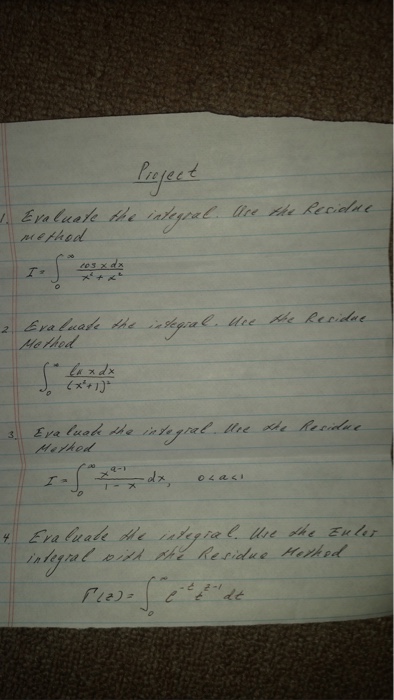 Project
1. Evaluate the integral. Use the Residue
method
I = ∫₀^∞ cos x dx / x² + x²
2 Evaluate the integral. Use the Residue
Method
∫₀^∞ ln x dx / (x²+1)²
3. Evaluate the integral. Use the Residue
Method
I = ∫₀^∞ x^(a-1) / 1 - x dx, 0<a<1
4. Evaluate the integral. Use the Euler
integral with the Residue Method
Γ(z) = ∫₀^∞ e^(-t) t^(z-1) dt